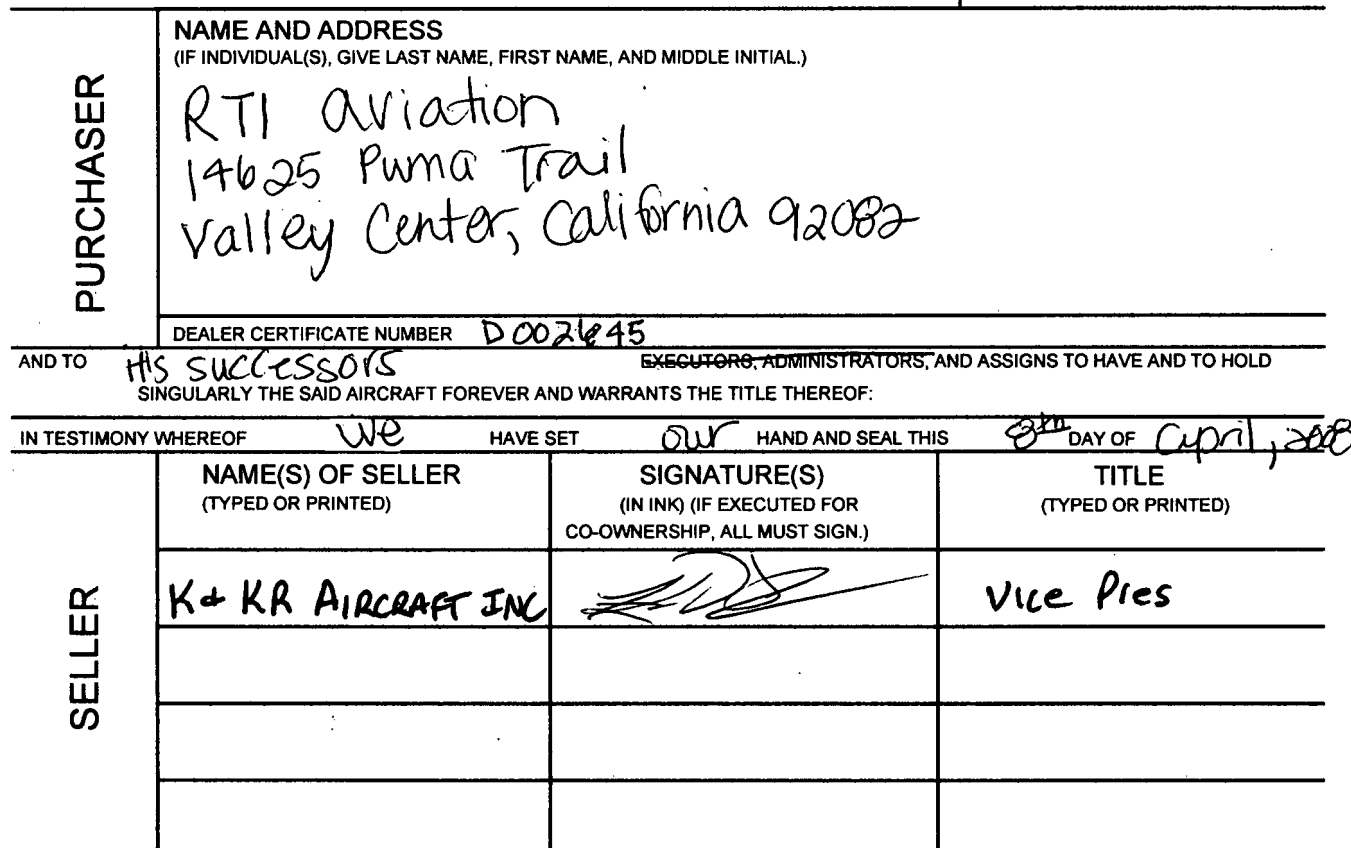 PURCHASER
NAME AND ADDRESS
(IF INDIVIDUAL(S), GIVE LAST NAME, FIRST NAME, AND MIDDLE INITIAL.)
RTI aviation
14625 Puma Trail
Valley Center, California 92082
DEALER CERTIFICATE NUMBER
AND TO His successors EXECUTORS, ADMINISTRATORS, AND ASSIGNS TO HAVE AND TO HOLD
SINGULARLY THE SAID AIRCRAFT FOREVER AND WARRANTS THE TITLE THEREOF:
IN TESTIMONY WHEREOF We HAVE SET our HAND AND SEAL THIS 8th DAY OF april, 2008
SELLER
NAME(S) OF SELLER
(TYPED OR PRINTED)
SIGNATURE(S)
(IN INK) (IF EXECUTED FOR
CO-OWNERSHIP, ALL MUST SIGN.)
TITLE
(TYPED OR PRINTED)
K & KR AIRCRAFT INC
Vice Pres